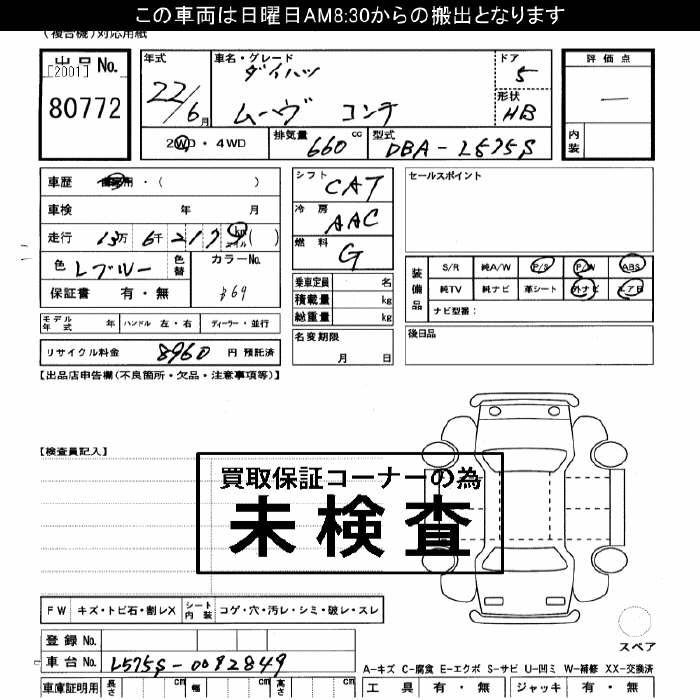 この車両は日曜日AM8:30からの搬出となります
(複合機)対応用紙
出品No.
[2001]
80772
年式
22/6月
車名・グレード
ダイハツ
ムーヴ コンテ
ドア
5
形状
HB
2WD・4WD
排気量 660 cc
型式 DBA-L575S
評価点
—
内装
車歴 自家用・( )
車検 年 月
走行 13万 6千 2179 km マイル ( )
色 Lブルー 色替
カラーNo.
保証書 有・無
シフト CAT
冷房 AAC
燃料 G
乗車定員 名
積載量 kg
総重量 kg
セールスポイント
装備品
S/R 純A/W P/S P/W ABS
純TV 純ナビ 革シート 外ナビ エアB
ナビ型番:
モデル年式 年 ハンドル 左・右 ディーラー・並行
名変期限
月 日
後日品
リサイクル料金 8960 円 預託済
【出品店申告欄(不良箇所・欠品・注意事項等)】
【検査員記入】
買取保証コーナーの為
未検査
FW キズ・トビ石・割レX シート内装 コゲ・穴・汚レ・シミ・破レ・スレ
スペア
登録No.
車台No. L575S-0082849
A-キズ C-腐食 E-エクボ S-サビ U-凹ミ W-補修 XX-交換済
車庫証明用 長さ cm 幅 cm 高さ cm
工具 有・無 ジャッキ 有・無